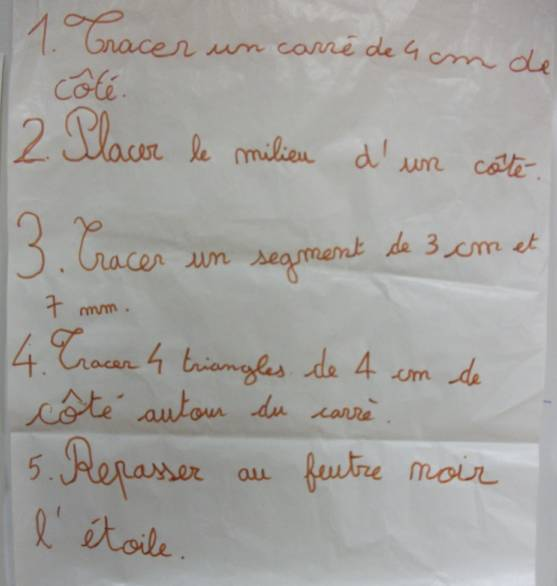 1. Tracer un carré de 4 cm de
côté.
2. Placer le milieu d'un côté.
3. Tracer un segment de 3 cm et
7 mm.
4. Tracer 4 triangles de 4 cm de
côté autour du carré.
5. Repasser au feutre noir
l'étoile.